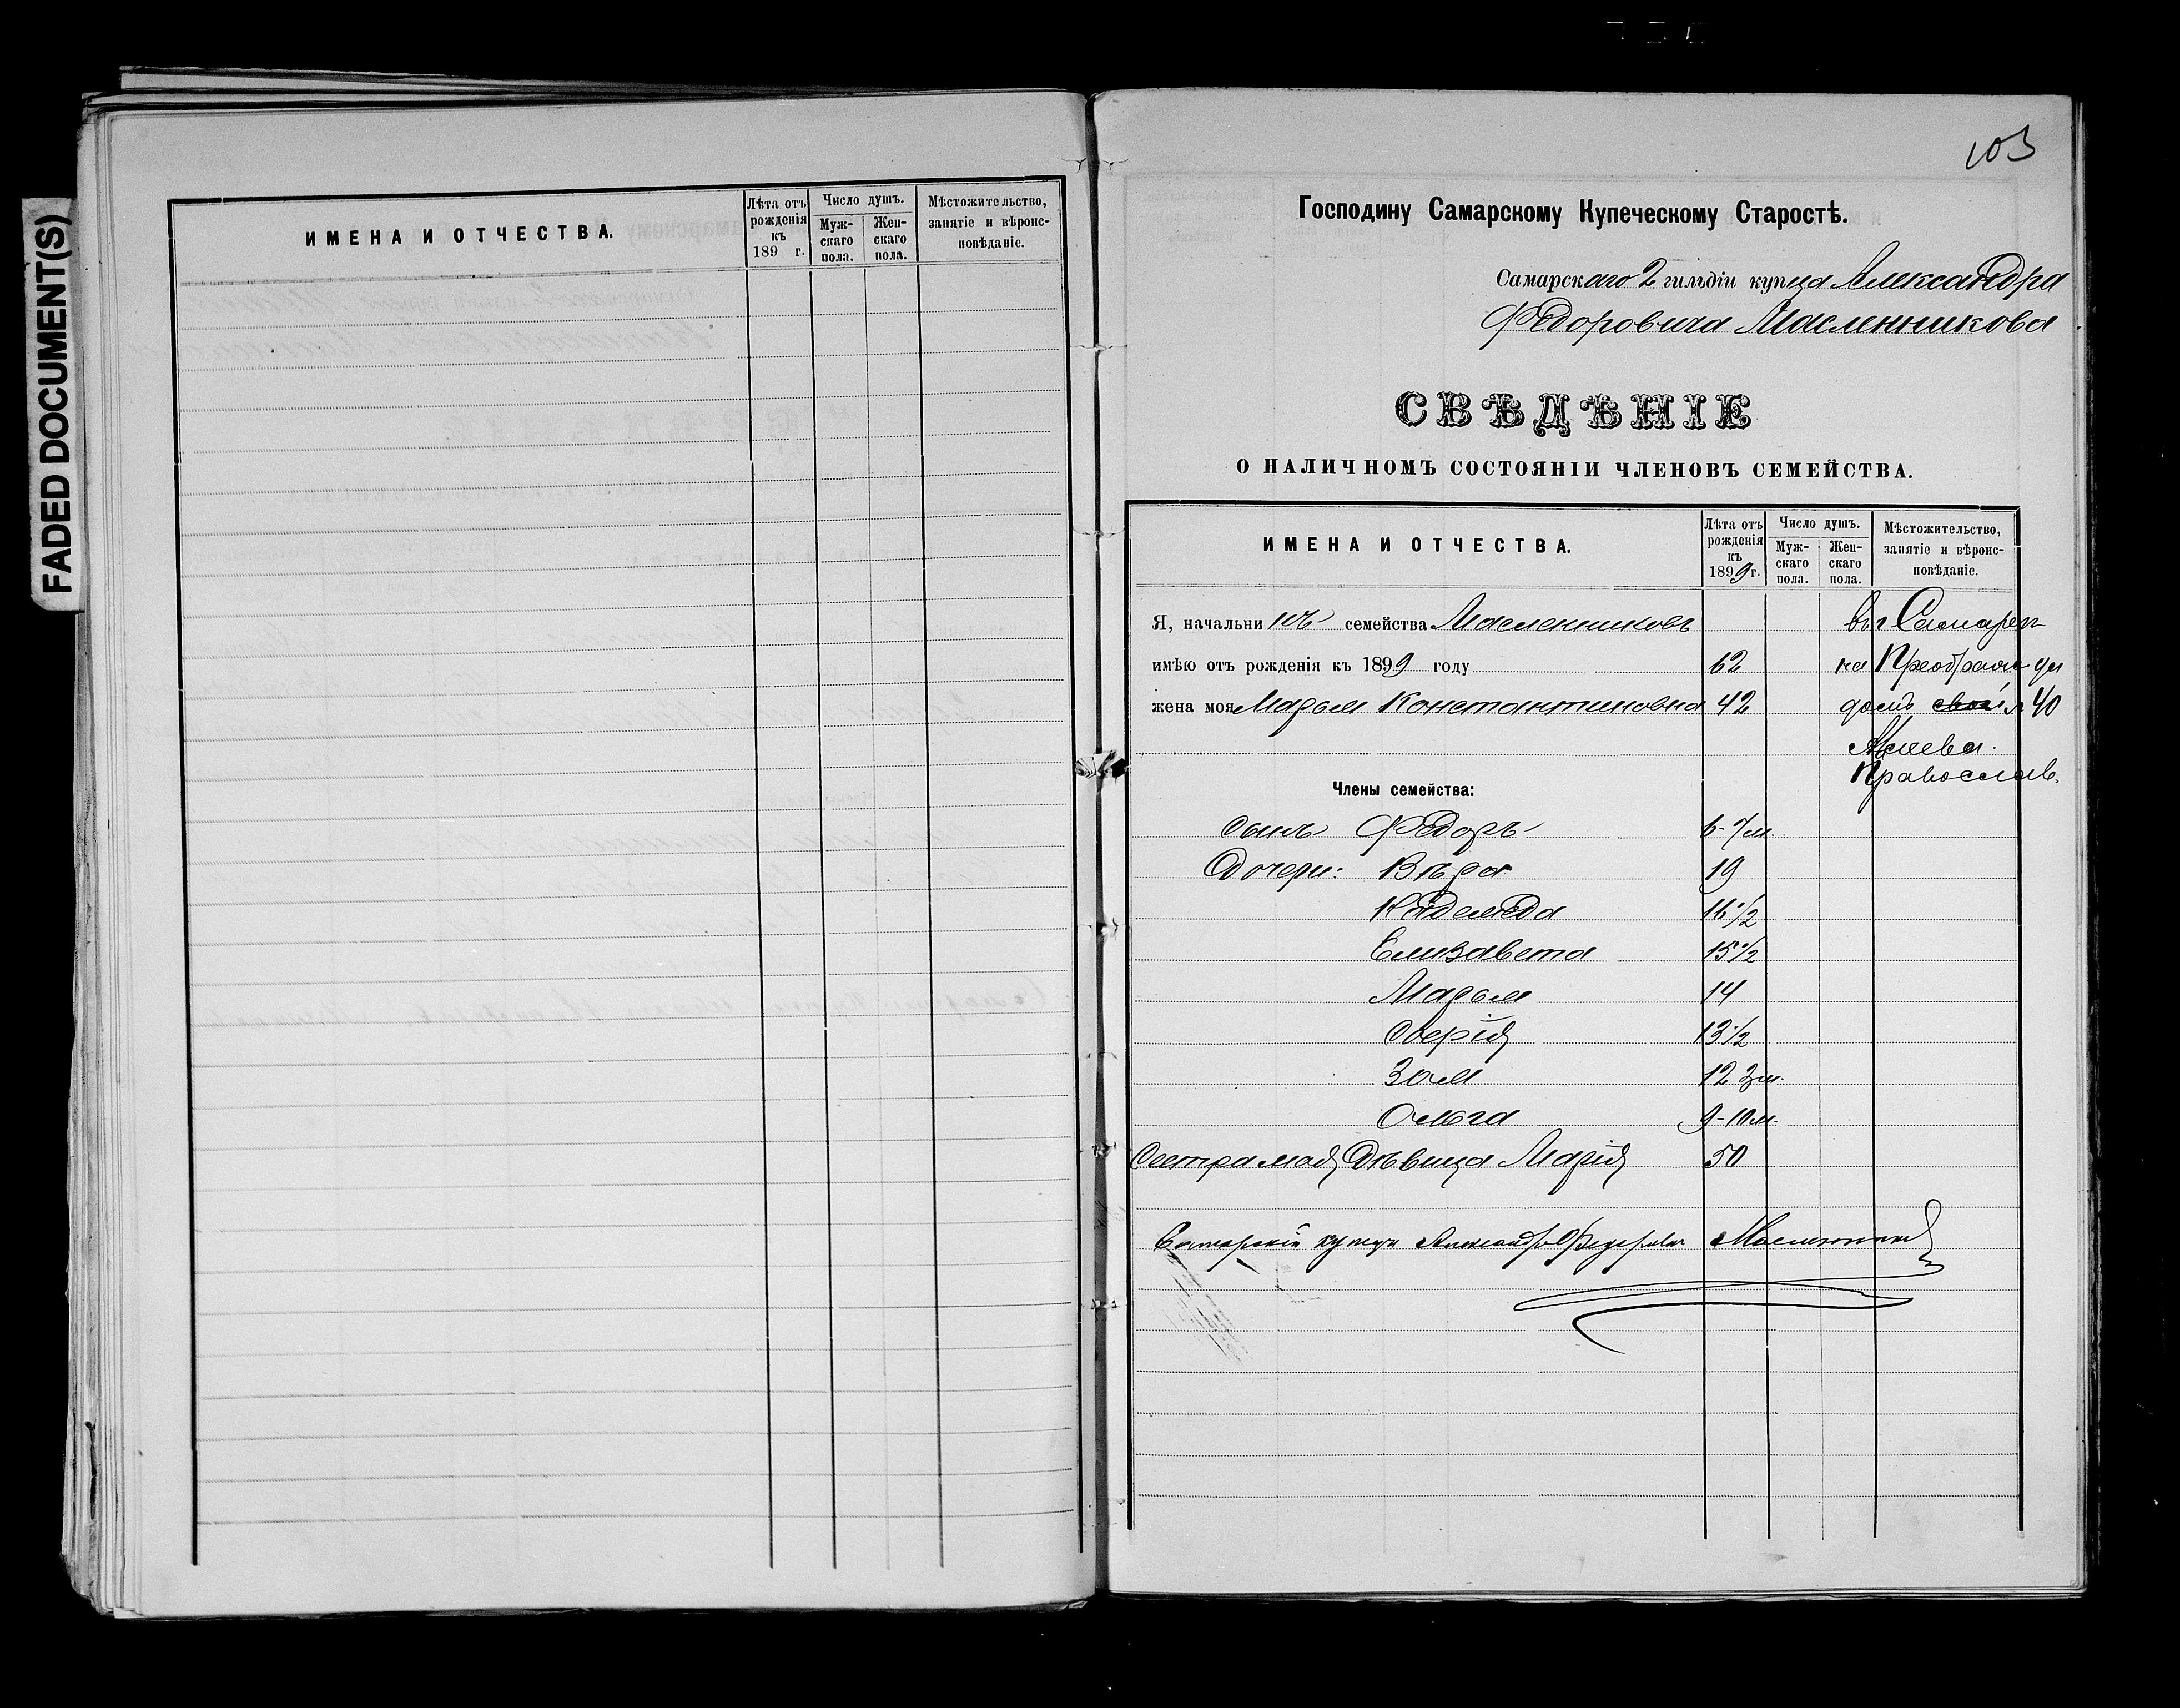 FADED DOCUMENT(S)
ИМЕНА И ОТЧЕСТВА.
Лѣта отъ рожденія къ 189 г.
Число душъ.
Мужскаго пола.
Женскаго пола.
Мѣстожительство, занятіе и вѣроисповѣданіе.
103
Господину Самарскому Купеческому Старостѣ.
Самарскаго 2 гильдіи купца Александра
Федоровича Масленникова
СВѢДѢНІЕ
О НАЛИЧНОМЪ СОСТОЯНІИ ЧЛЕНОВЪ СЕМЕЙСТВА.
ИМЕНА И ОТЧЕСТВА.
Лѣта отъ рожденія къ 1899 г.
Число душъ.
Мужскаго пола.
Женскаго пола.
Мѣстожительство, занятіе и вѣроисповѣданіе.
Я, начальникъ семейства Масленниковъ въ г Самарѣ
имѣю отъ рожденія къ 1899 году 62 на Преображ ул
жена моя Марья Константиновна 42 домъ свой 40
Православ.
Члены семейства:
Сынъ Федоръ 6-7м.
Дочери: Вѣра 19
Надежда 16 1/2
Елизавета 15 1/2
Марья 14
13 1/2
Зоя 12 3м.
Ольга 9-10м.
Сестра моя Дѣвица Марія 50
Самарскій купецъ Александръ Федоровичъ Масленниковъ